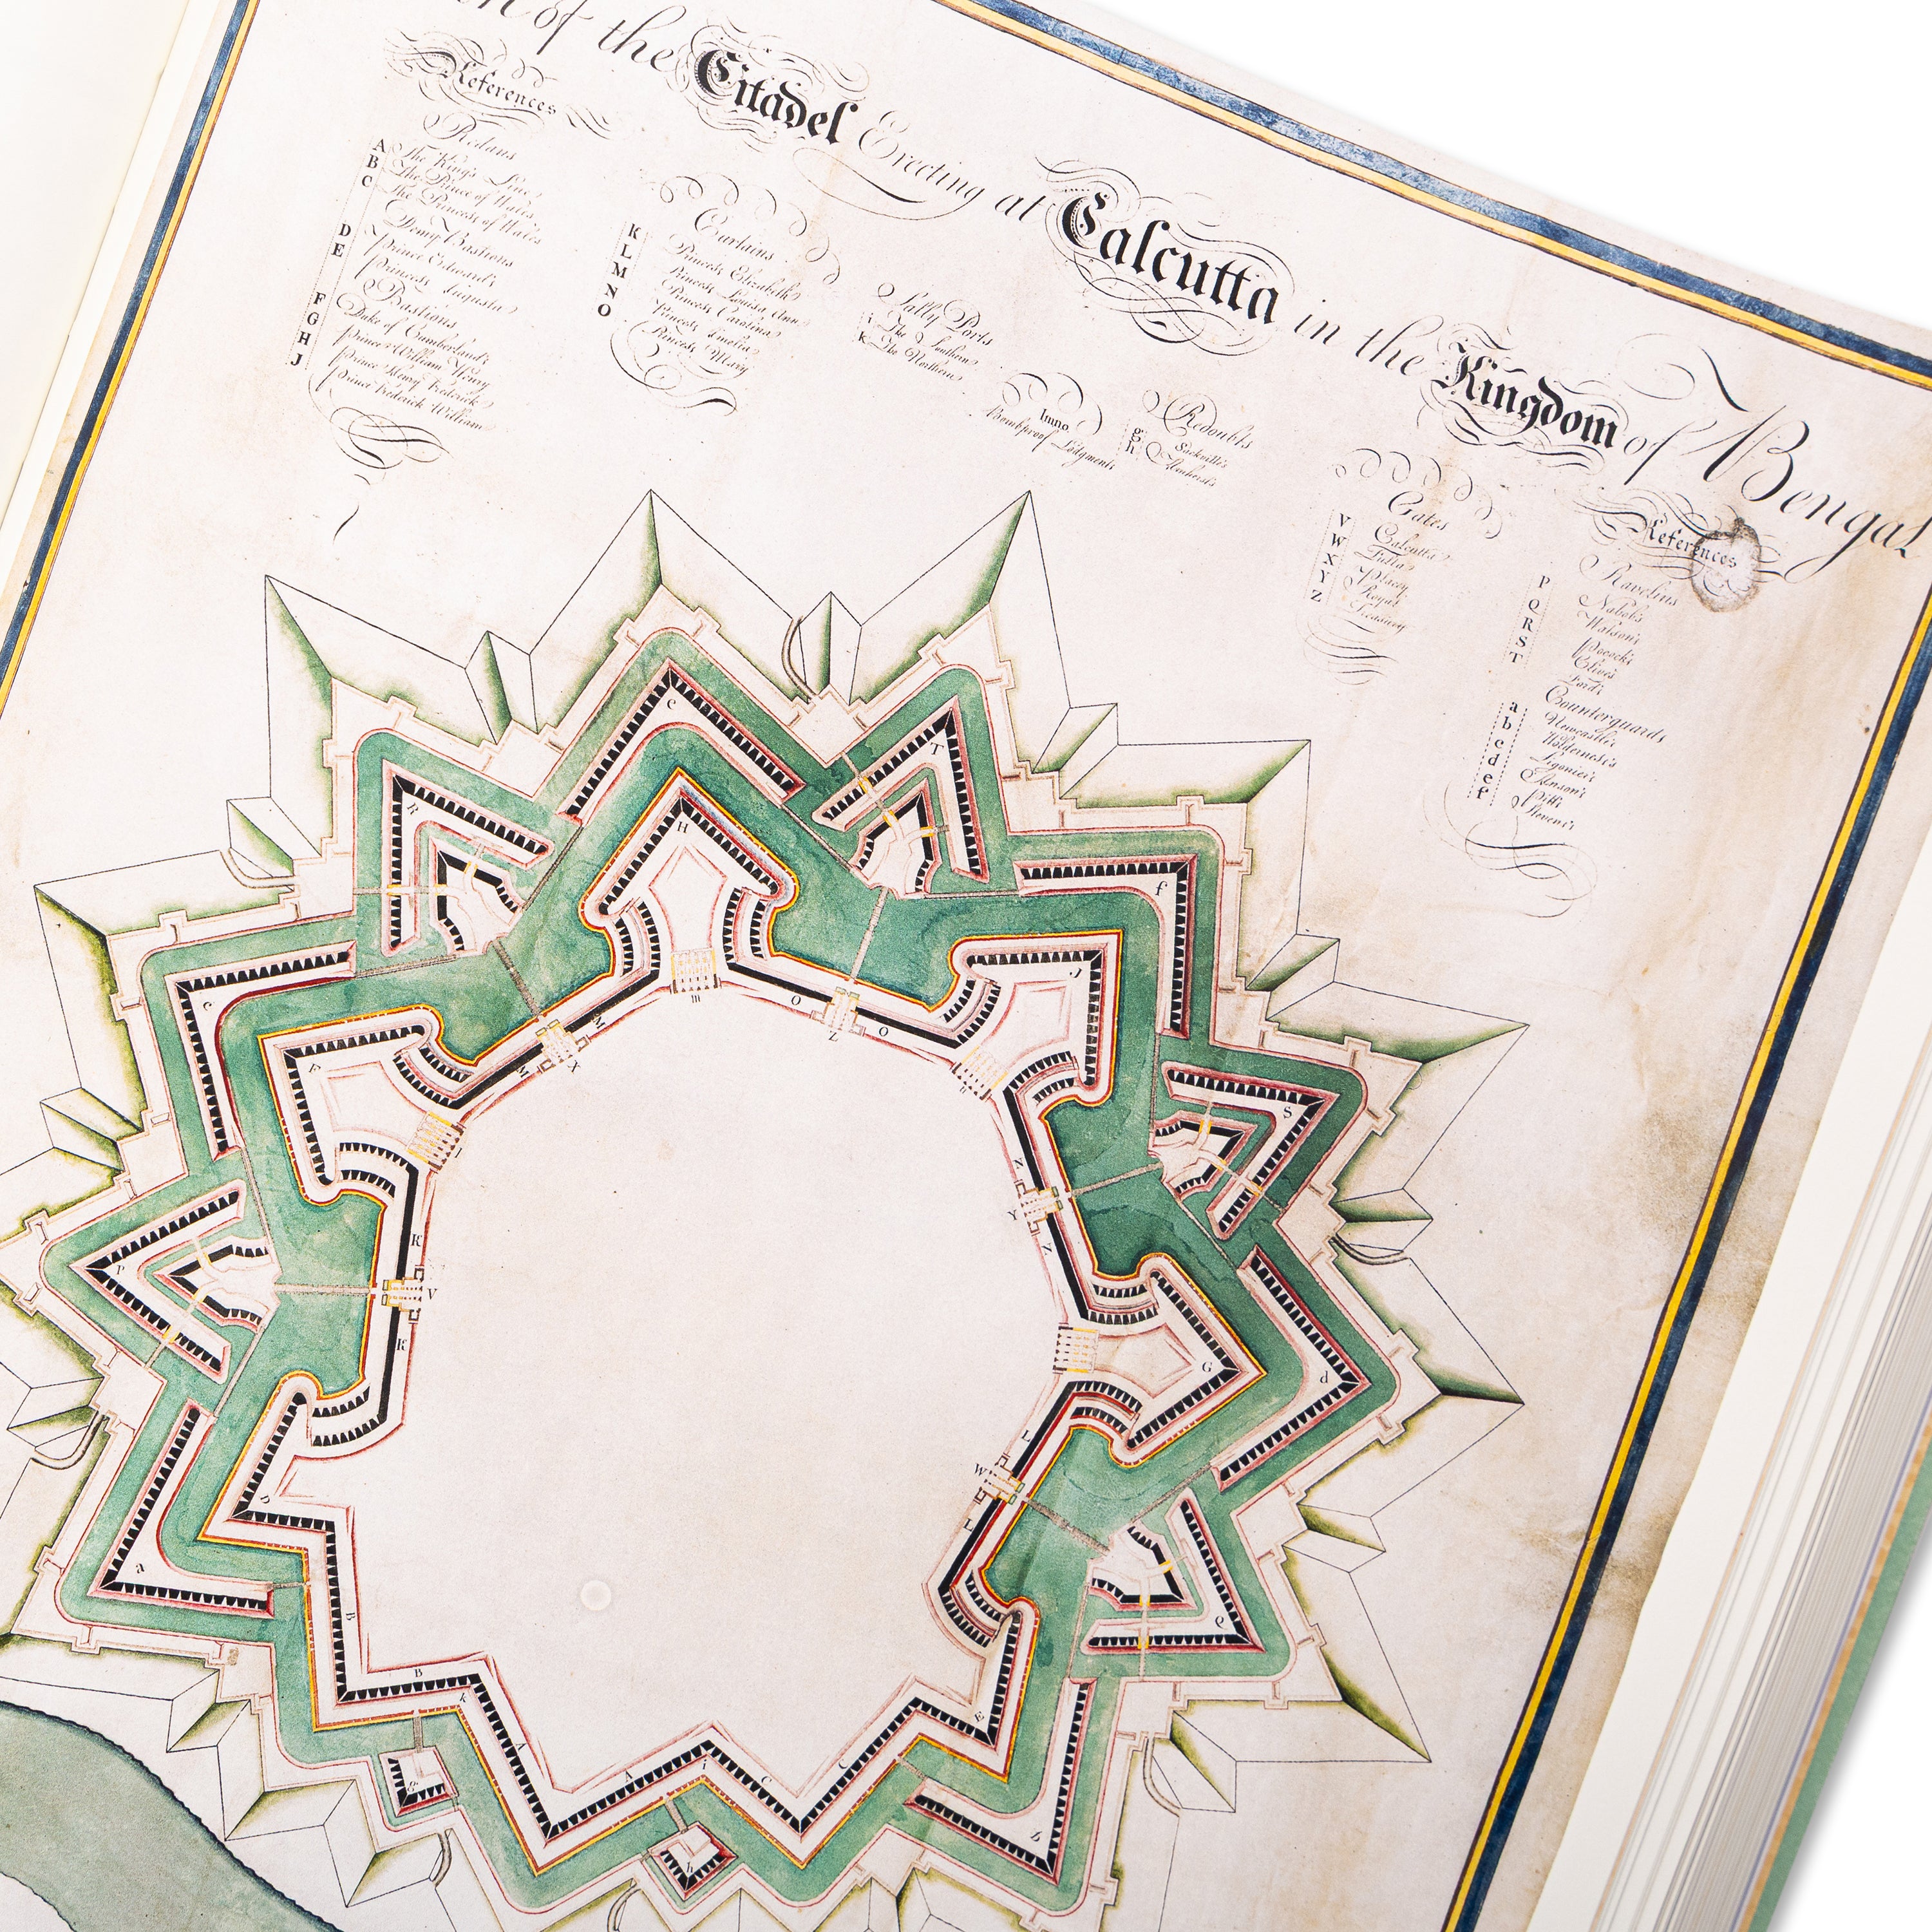 of the Citadel Erecting at Calcutta in the Kingdom of Bengal
References
Redans
A The King's Line
B The Prince of Wales
C The Princess of Wales
Demy Bastions
D Prince Edward's
E Princess Augusta
Bastions
F Duke of Cumberland's
G Prince William Henry
H Prince Henry Frederick
J Prince Frederick William
Curtains
K Princess Elizabeth
L Princess Louisa Ann
M Princess Carolina
N Princess Amelia
O Princess Mary
Sally Ports
i The Southern
k The Northern
lmno
Bombproof Lodgments
Redoubts
g Sackville's
h Amherst's
Gates
V Calcutta
W Fulta
X Placey
Y Royal
Z Treasury
References
Ravelins
P Nabob's
Q Watson's
R Pocock's
S Clive's
T Ford's
Counterguards
a Newcastle's
b Holderness's
c Ligonier's
d Anson's
e Pitt's
f Stevens's
c
T
R
H
f
e
J
m
O
O
Z
M
M
X
F
S
N
Y
N
P
K
V
K
G
d
L
W
L
D
a
Q
B
B
k
E
A
A
i
C
C
g
h
b